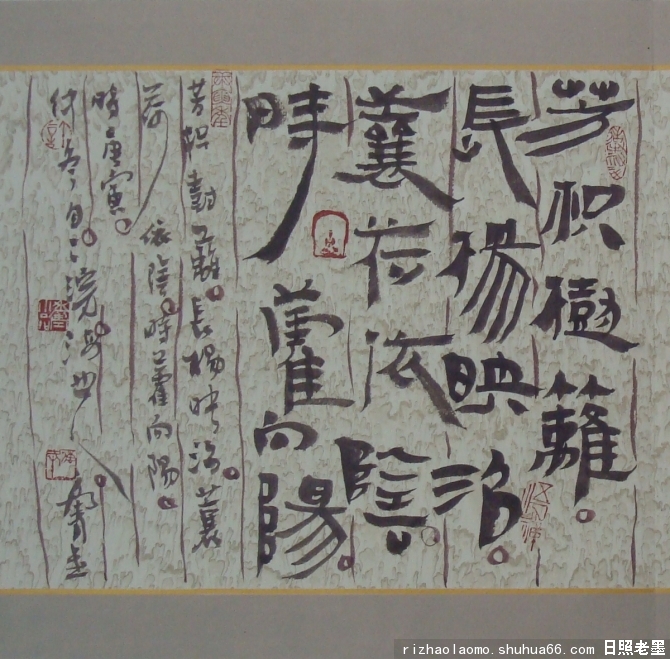 芳枳樹籬
長楊映沼
蘘荷依陰
時藿向陽
芳枳樹籬長楊映沼蘘
荷依陰時藿向陽
時庚寅
仲冬
rizhaolaomo.shuhua66.com 日照老墨